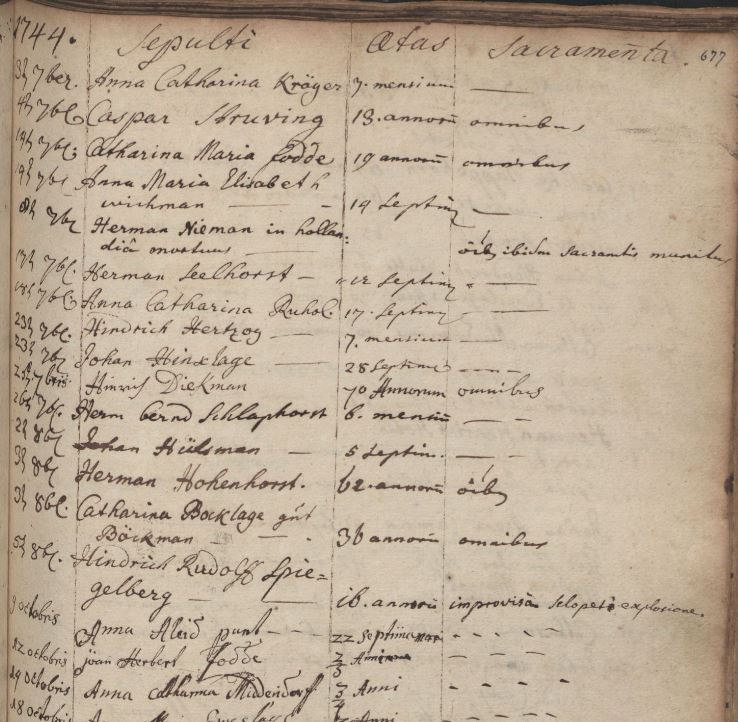 1744. Sepulti Ætas Sacramenta. 677
3t 7ber. Anna Catharina Kröger 7. mensium —
4t 7b Caspar Struving 18. annorū omnibus
14t 7b Catharina Maria Fodde 19 annorū omnibus
19t 7b Anna Maria Elisabeth
wichman — 14 Septim —
7b Herman Nieman in hollan:
diâ mortuus — oīb ibidm Sacramtis munitus
17t 7b Herman Seelhorst — 12 Septim —
18t 7b Anna Catharina Ruhol. 17. Septim —
23t 7b Hindrich Hertzog — 7. mensium —
23t 7b Johan Hinxlage — 28 Septim — — —
7bris Hinrich Diekman 70 Annorum omnibus
26t 7b. Herm bernd Schlaphorst 6. mensiū — —
2t 8b Johan Hülsman — 5 Septim. — —
3t 8b Herman Hohenhorst. 62. annorū oīb
3t 8b. Catharina Bocklage gnt
Böckman — 36 annorū omnibus
5t 8b. Hindrich Rudolff Spie=
gelberg — — 16. annorū improvisâ sclopeti explosione.
9 octobris Anna Aleid punt - - - 22 Septim - - - -
12 octobris joan Herbert Fodde - - - -
14 octobris Anna Catharina Middendorff 3/4 Anni - - - -
18 octobris Anna Anni